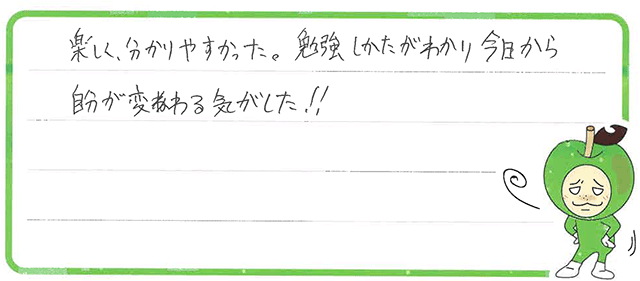 楽しく、分かりやすかった。勉強しかたがわかり今日から
自分が変わる気がした!!